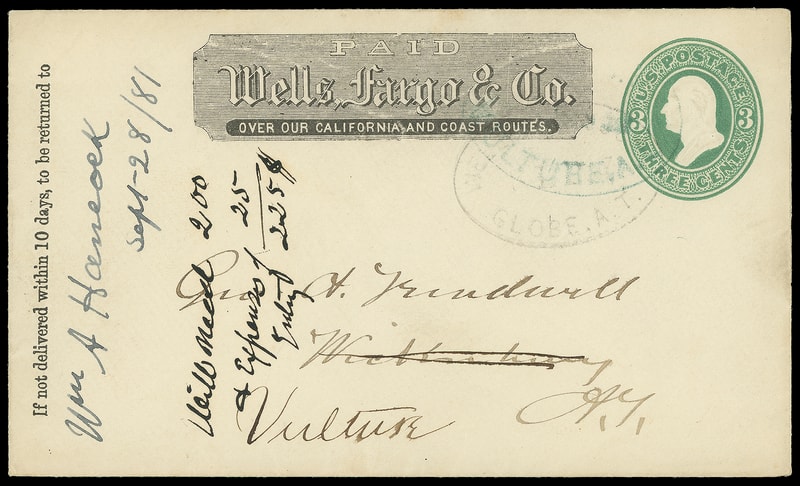 PAID
Wells, Fargo & Co.
OVER OUR CALIFORNIA AND COAST ROUTES.
U.S. POSTAGE
3 3
THREE CENTS
VULTURE, A
GLOBE. A. T.
If not delivered within 10 days, to be returned to
Wm A Hancock
Sept-28/81
200
& Expenses 25
July 225
Geo. H. Treadwell
Wickenburg
Vulture A.T.